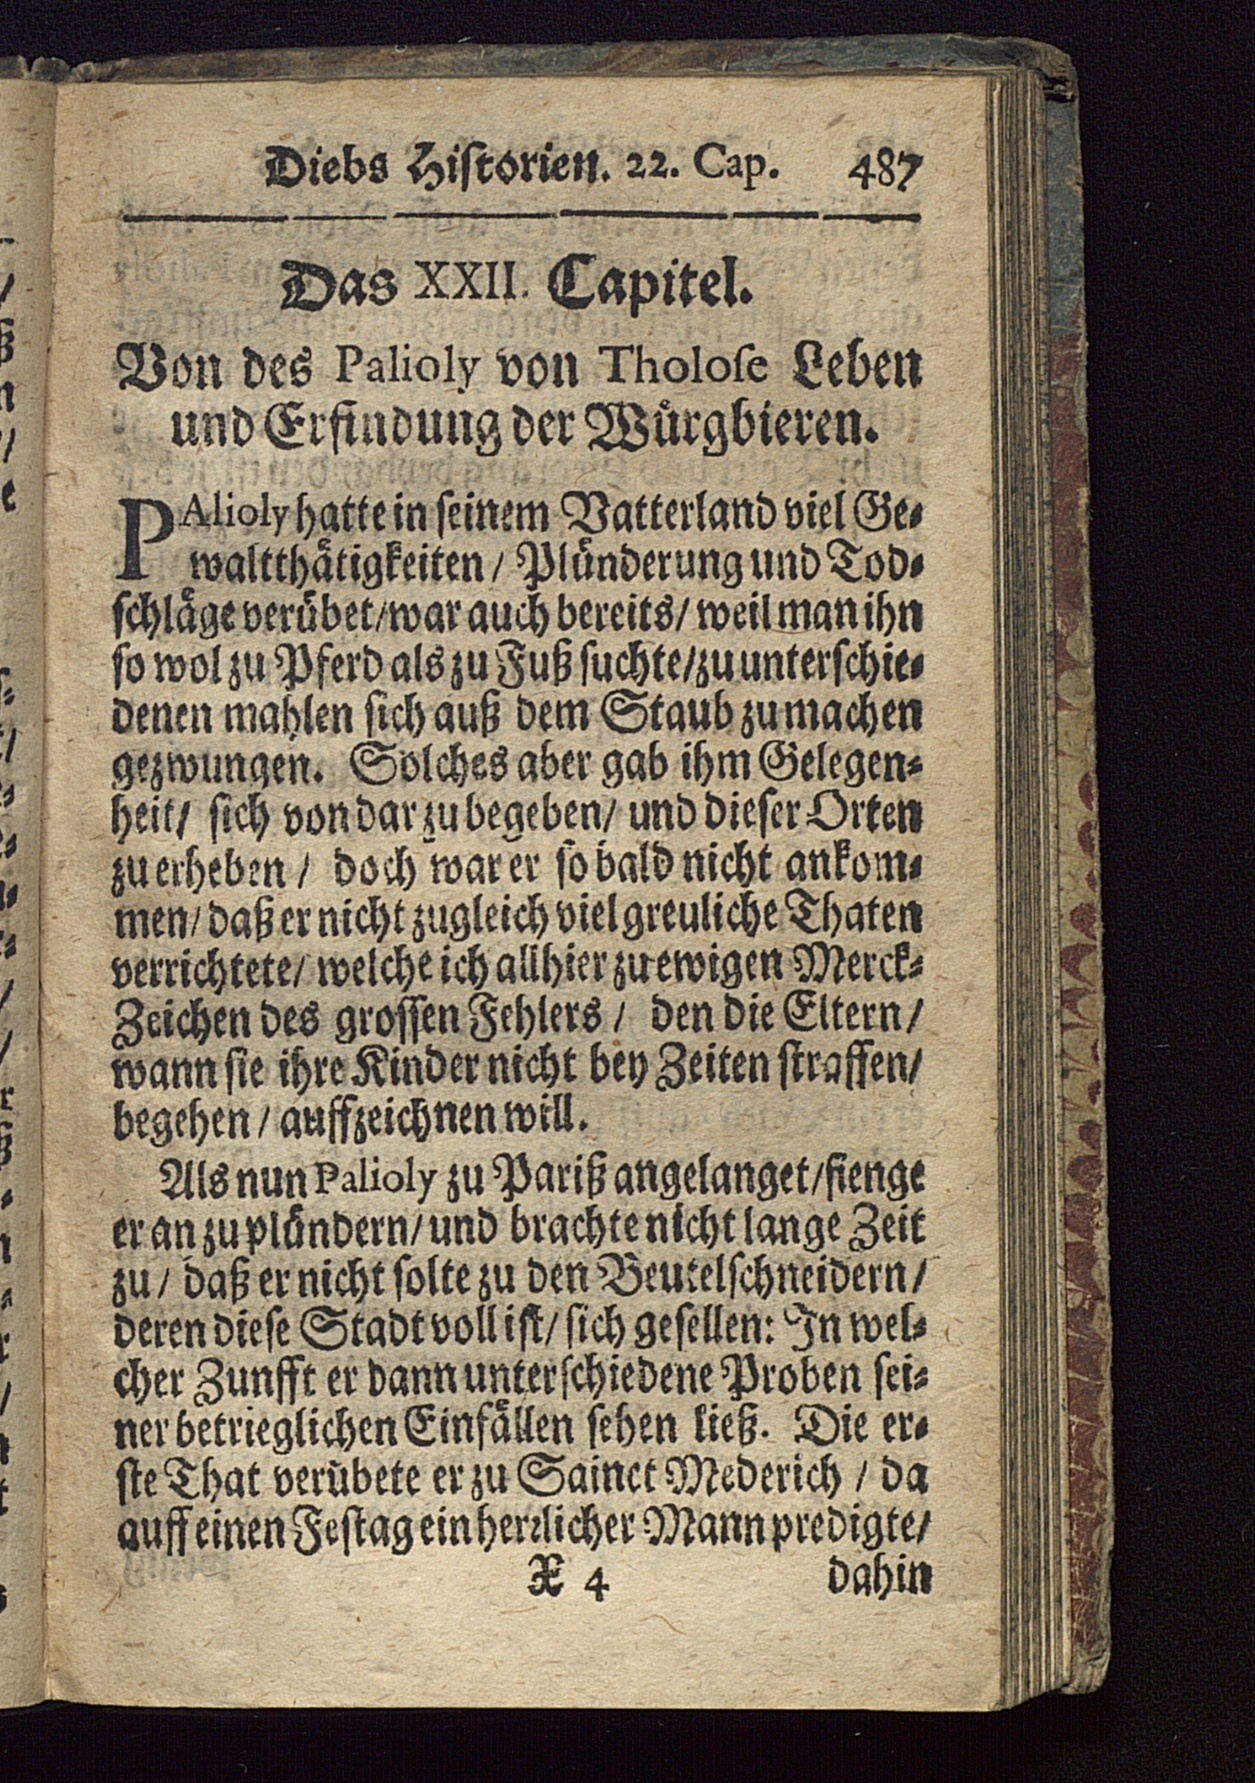 Diebs Historien. 22. Cap. 487
Das XXII. Capitel.
Von des Palioly von Tholose Leben
und Erfindung der Würgbieren.
PAlioly hatte in seinem Vatterland viel Ge-
waltthätigkeiten / Plünderung und Tod-
schläge verübet / war auch bereits / weil man ihn
so wol zu Pferd als zu Fuß suchte / zu unterschie-
denen mahlen sich auß dem Staub zu machen
gezwungen. Solches aber gab ihm Gelegen-
heit / sich von dar zu begeben / und dieser Orten
zu erheben / doch war er so bald nicht ankom-
men / daß er nicht zugleich viel greuliche Thaten
verrichtete / welche ich allhier zu ewigen Merck-
Zeichen des grossen Fehlers / den die Eltern /
wann sie ihre Kinder nicht bey Zeiten straffen /
begehen / auffzeichnen will.
Als nun Palioly zu Pariß angelanget / fienge
er an zu plündern / und brachte nicht lange Zeit
zu / daß er nicht solte zu den Beutelschneidern /
deren diese Stadt voll ist / sich gesellen: In wel-
cher Zunfft er dann unterschiedene Proben sei-
ner betrieglichen Einfällen sehen ließ. Die er-
ste That verübete er zu Sainct Mederich / da
auff einen Festag ein herrlicher Mann predigte /
X 4 dahin